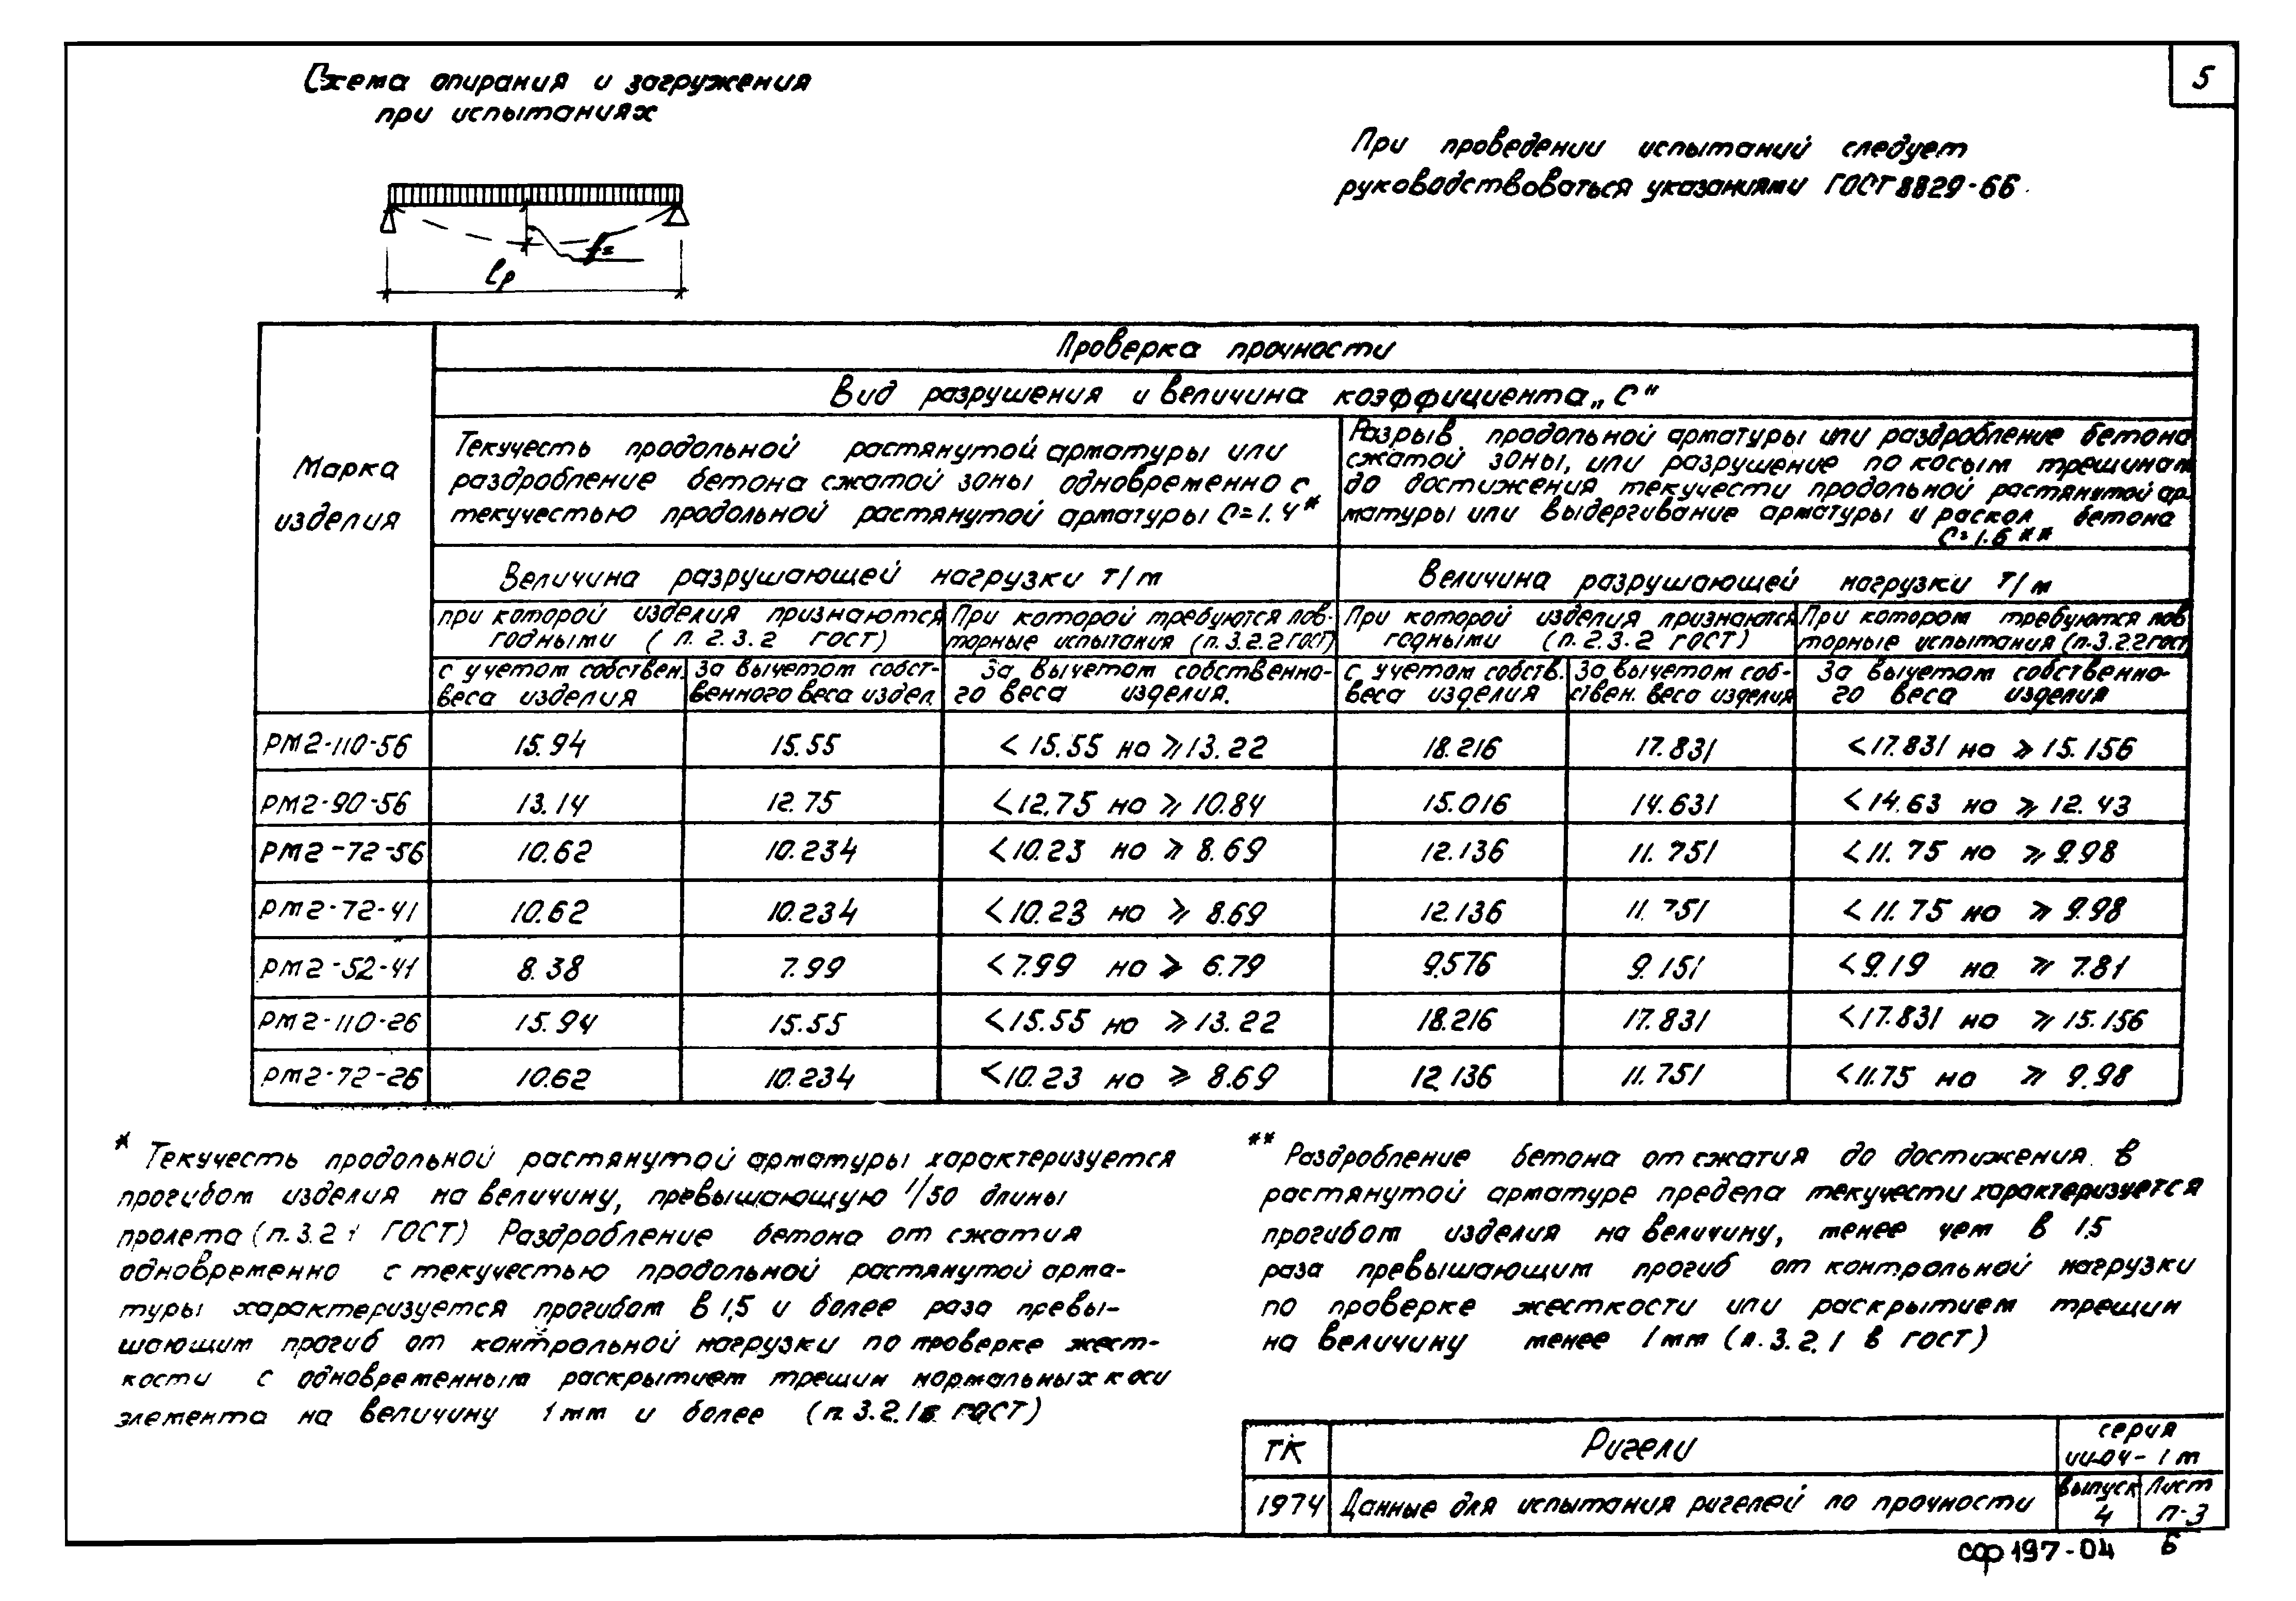 5
Схема опирания и загружения
при испытаниях
При проведении испытаний следует
руководствоваться указаниями ГОСТ 8829-66.
f=
lр
Марка
изделия
Проверка прочности
Вид разрушения и величина коэффициента „С"
Текучесть продольной растянутой арматуры или
раздробление бетона сжатой зоны одновременно с
текучестью продольной растянутой арматуры С=1.4*
Разрыв продольной арматуры или раздробление бетона
сжатой зоны, или разрушение по косым трещинам
до достижения текучести продольной растянутой ар-
матуры или выдергивание арматуры и раскол бетона
С=1.6**
Величина разрушающей нагрузки т/м
Величина разрушающей нагрузки т/м
при которой изделия признаются
годными ( п. 2.3.2 ГОСТ)
При которой требуются пов-
торные испытания (п. 3.2.2 ГОСТ)
При которой изделия признаются
годными (п. 2.3.2 ГОСТ)
При котором требуются пов
торные испытания (п.3.2.2 ГОСТ)
с учетом собствен.
веса изделия
За вычетом собст-
венного веса издел.
За вычетом собственно-
го веса изделия.
с учетом собств.
веса изделия
За вычетом соб-
ствен. веса изделия
За вычетом собственно-
го веса изделия
РМ2-110-56 15.94 15.55 <15.55 но ⩾13.22 18.216 17.831 <17.831 но ⩾15.156
РМ2-90-56 13.14 12.75 <12.75 но ⩾10.84 15.016 14.631 <14.63 но ⩾12.43
РМ2-72-56 10.62 10.234 <10.23 но ⩾8.69 12.136 11.751 <11.75 но ⩾9.98
РМ2-72-41 10.62 10.234 <10.23 но ⩾8.69 12.136 11.751 <11.75 но ⩾9.98
РМ2-52-41 8.38 7.99 <7.99 но ⩾6.79 9.576 9.151 <9.19 но ⩾7.81
РМ2-110-26 15.94 15.55 <15.55 но ⩾13.22 18.216 17.831 <17.831 но ⩾15.156
РМ2-72-26 10.62 10.234 <10.23 но ⩾8.69 12.136 11.751 <11.75 но ⩾9.98
* Текучесть продольной растянутой арматуры характеризуется
прогибом изделия на величину, превышающую 1/50 длины
пролета (п.3.2.1 ГОСТ) Раздробление бетона от сжатия
одновременно с текучестью продольной растянутой арма-
туры характеризуется прогибом в 1,5 и более раза превы-
шающим прогиб от контрольной нагрузки по проверке жест-
кости с одновременным раскрытием трещин нормальных к оси
элемента на величину 1мм и более (п. 3.2.1в ГОСТ)
** Раздробление бетона от сжатия до достижения в
растянутой арматуре предела текучести характеризуется
прогибом изделия на величину, менее чем в 1.5
раза превышающим прогиб от контрольной нагрузки
по проверке жесткости или раскрытием трещин
на величину менее 1мм (п. 3.2.1 в ГОСТ)
ТК
Ригели
серия
ии-04-1м
1974
Данные для испытания ригелей по прочности
выпуск
4
Лист
П-3
сф 197-04 6